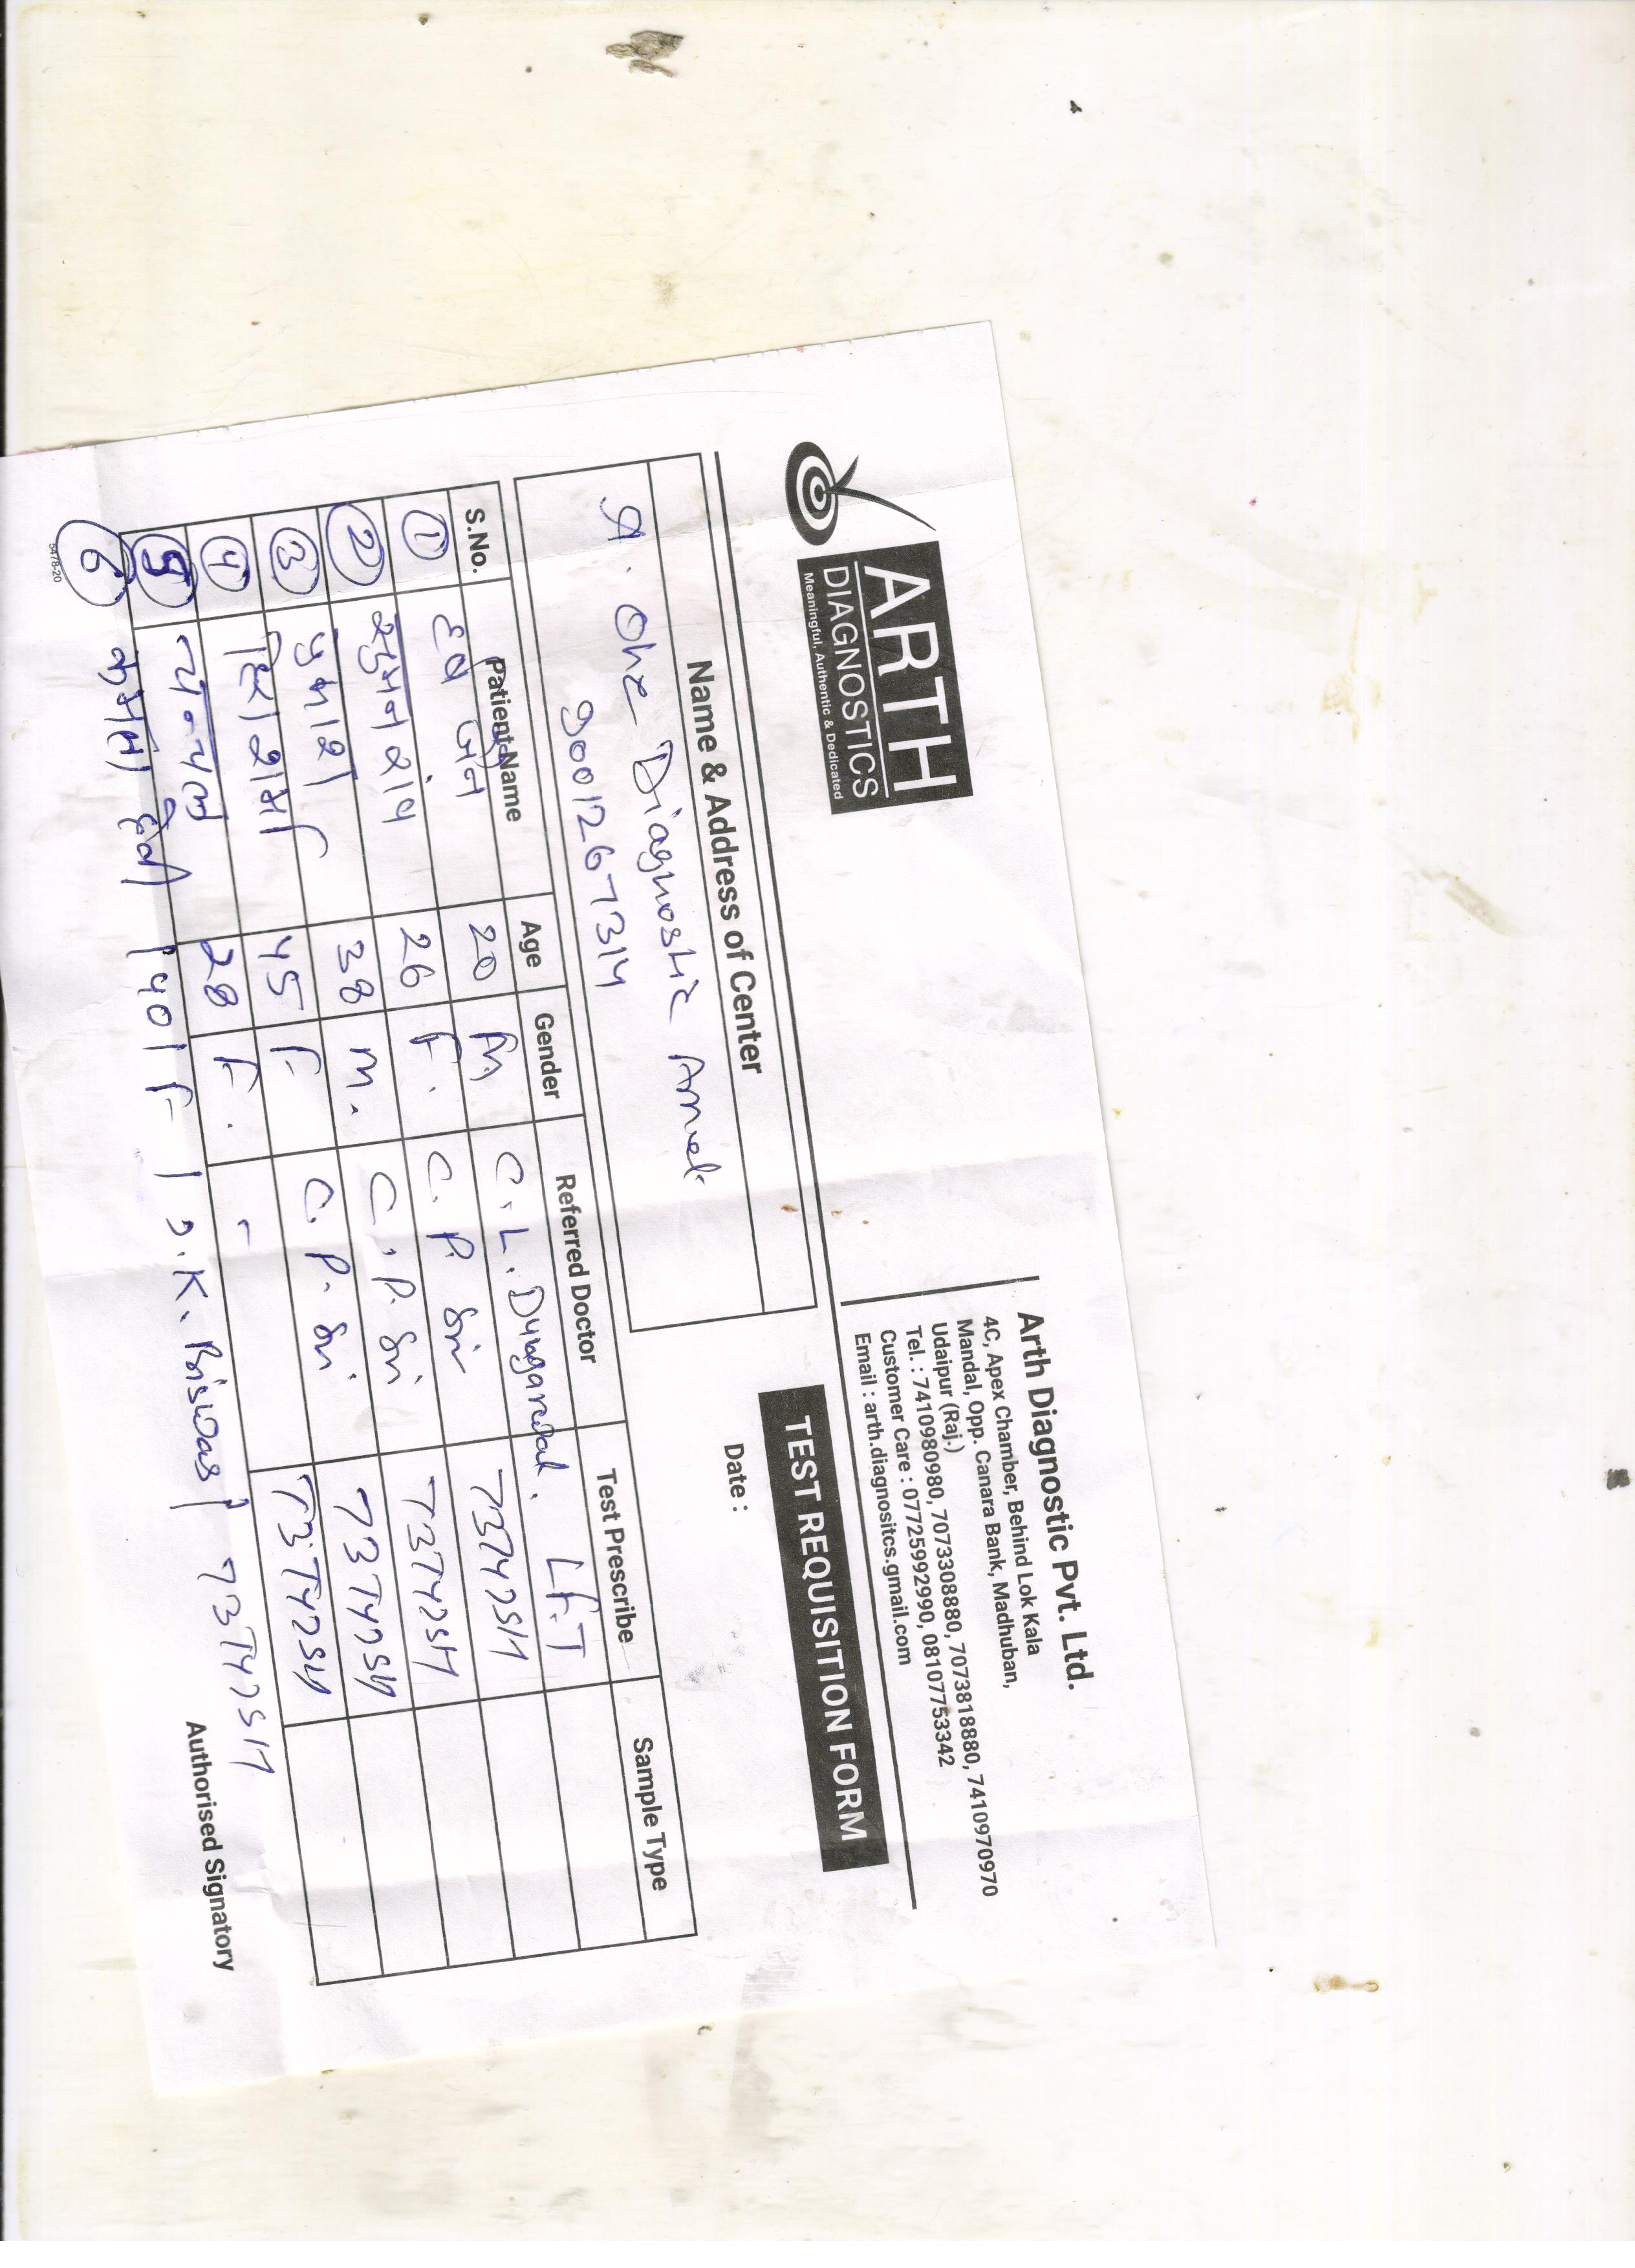 ARTH
DIAGNOSTICS
Meaningful, Authentic & Dedicated
Arth Diagnostic Pvt. Ltd.
4C, Apex Chamber, Behind Lok Kala
Mandal, Opp. Canara Bank, Madhuban,
Udaipur (Raj.)
Tel. : 7410980980, 7073308880, 7073818880, 7410970970
Customer Care : 07725992990, 08107753342
Email : arth.diagnositcs.gmail.com
TEST REQUISITION FORM
Name & Address of Center
Date :
A. One Diagnostic
9001267314
S.No. Patient Name Age Gender Referred Doctor Test Prescribe Sample Type
1 20 M C. L. Dungarwal. LFT
2 26 F. C. P. Sir T3T4TSH
3 38 M. C. P. Sir T3T4TSH
4 45 F C. P. Sir T3T4TSH
5 28 F. - T3T4TSH
6 कमला देवी | 40 | F | Biswas | T3T4TSH
Authorised Signatory
5478-20